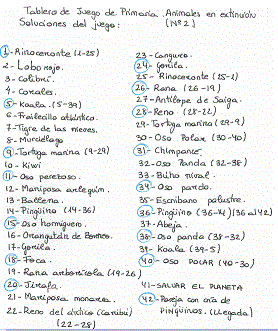 Tablero de Juego de Primaria. Animales en extinción
Soluciones del juego: (Nº2)
1-Rinoceronte (1-25)
2- Lobo rojo.
3- Colibrí.
4- Corales.
5- Koala. (5-39)
6- Frailecillo atlántico.
7- Tigre de las nieves.
8- Murciélago
9- Tortuga marina (9-29)
10- Kiwi
11- Oso perezoso.
12- Mariposa arlequín.
13- Ballena.
14- Pingüino (14-36)
15- Oso hormiguero.
16- Orangután de Borneo.
17- Gorila.
18- Foca.
19- Rana arborícola (19-26)
20- Jirafa.
21- Mariposa monarca.
22- Reno del ártico (caribú)
(22-28)
23- Canguro.
24- Gorila.
25- Rinoceronte (25-1)
26- Rana (26-19)
27- Antílope de Saiga.
28- Reno (28-22)
29- Tortuga marina (29-9)
30- Oso Polar (30-40)
31- Chimpancé.
32- Oso Panda (32-38)
33- Búho nival.
34- Oso pardo.
35- Escribano palustre.
36- Pingüino (36-14) (36 al 42)
37- Abeja.
38- Oso panda (38-32)
39- Koala (39-5)
40- OSO POLAR (40-30)
41- SALVAR EL PLANETA
42- Pareja con cría de
PINGÜINOS. (Llegada)